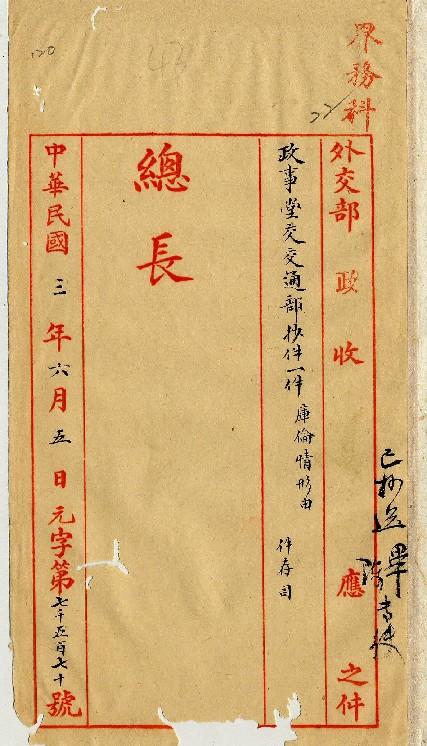 界務科
外交部政收應之件
政事堂交交通部抄件一件 庫倫情形由 件存司
總長
中華民國三年六月五日元字第七千五百七十號
120
43
22
已抄送